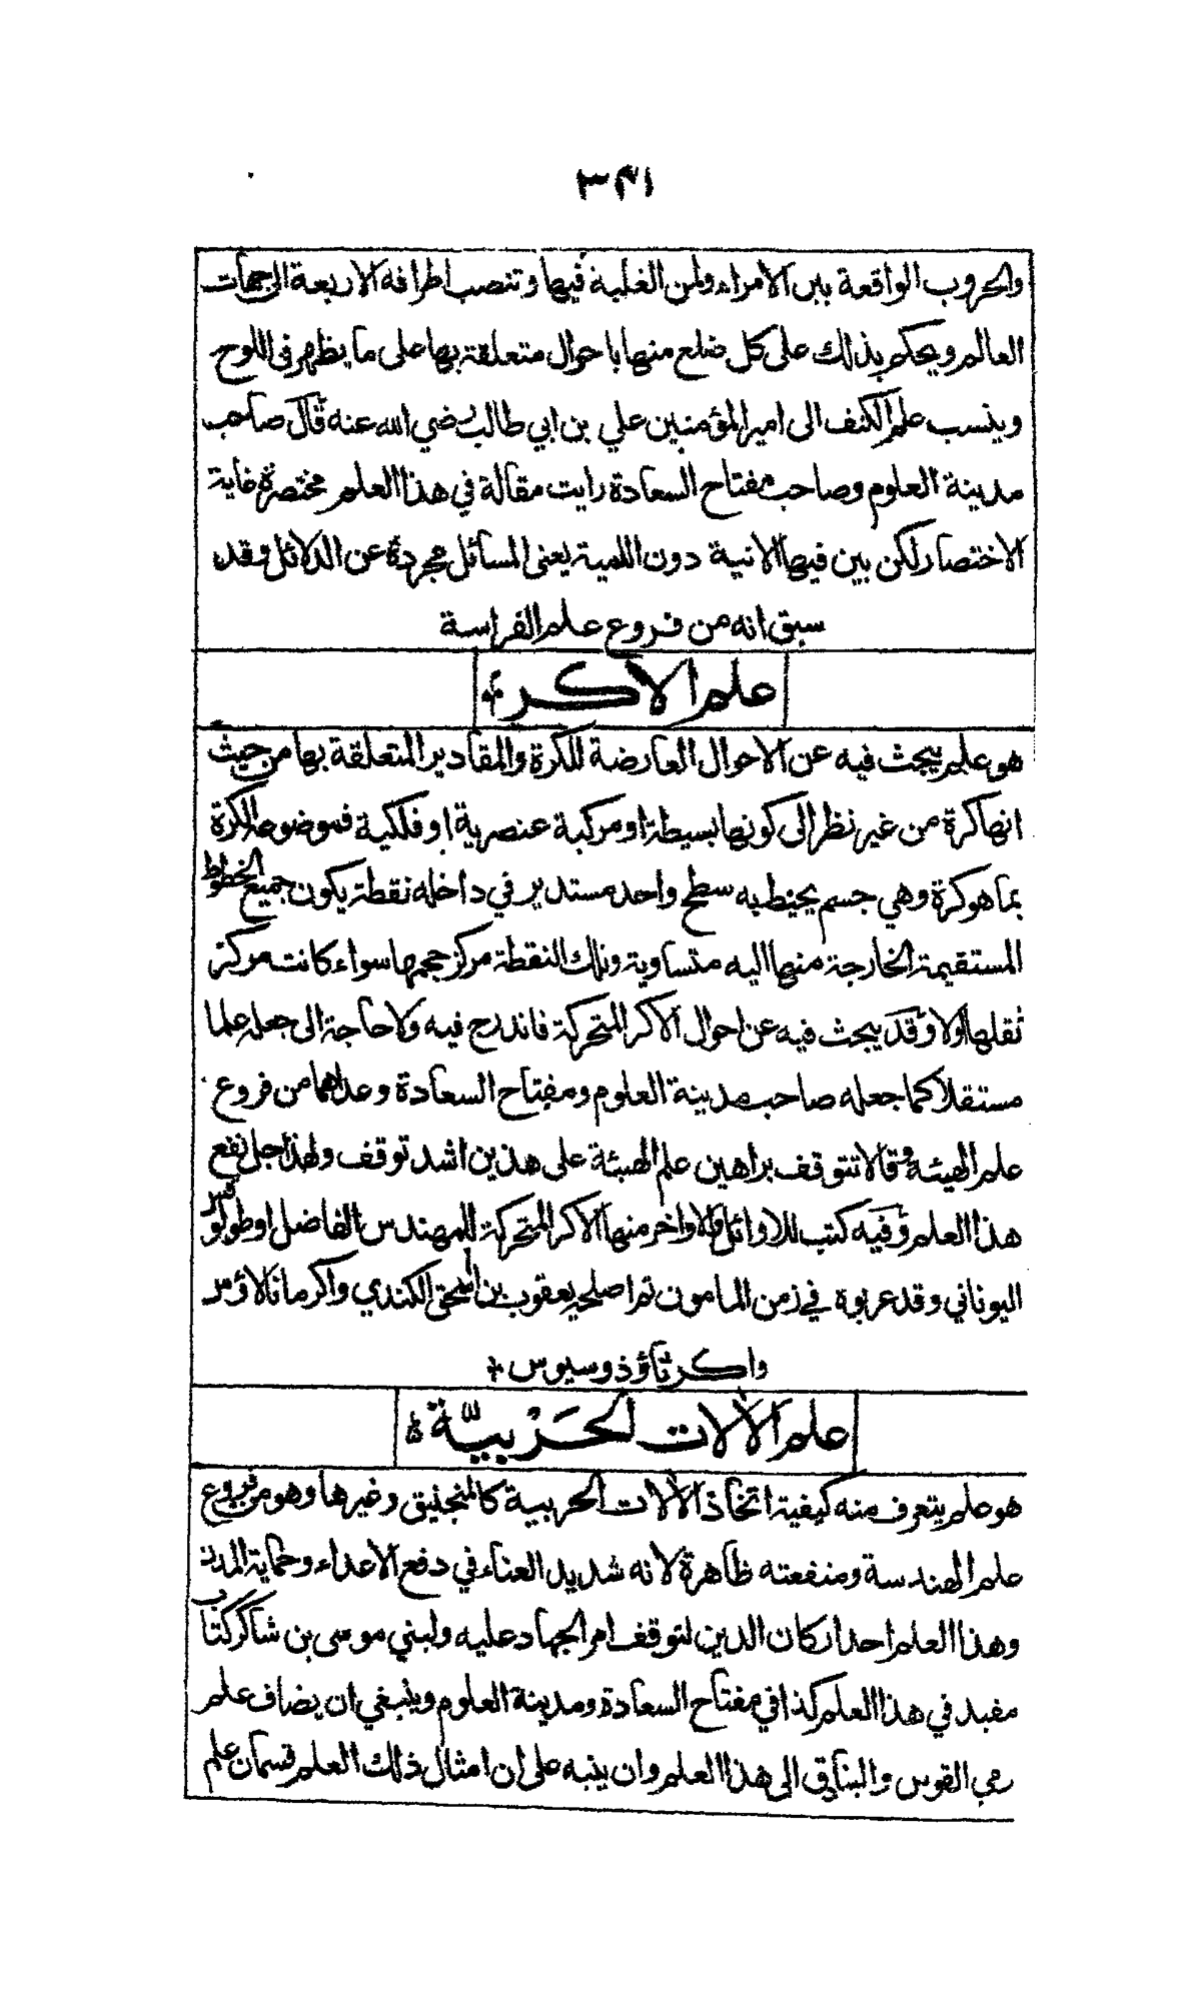 ٣٤١
والحروب الواقعة بين الامراء ولمن الغلبة فيها وتنصب اطرافه الاربعة الى جهات
العالم ويحكم بذلك على كل ضلع منها باحوال متعلقة بها على ما يظهر فى اللوح
وينسب علم الكتف الى امير المؤمنين علي بن ابي طالب رضي الله عنه قال صاحب
مدينة العلوم وصاحب مفتاح السعادة رايت مقالة في هذا العلم مختصرة غاية
الاختصار لكن بين فيها الانية دون اللمية يعنى المسائل مجردة عن الدلائل وقد
سبق انه من فروع علم الفراسة
علم الاكر
هو علم يبحث فيه عن الاحوال العارضة للكرة والمقادير المتعلقة بها من حيث
انها كرة من غير نظر الى كونها بسيطة او مركبة عنصرية او فلكية فموضوعه الكرة
بما هو كرة وهي جسم يحيط به سطح واحد مستدير في داخله نقطة يكون جميع الخطوط
المستقيمة الخارجة منها اليه متساوية وتلك النقطة مركز حجمها سواء كانت مركز
ثقلها اولا وقد يبحث فيه عن احوال الاكر المتحركة فاندرج فيه ولا حاجة الى جعله علما
مستقلا كما جعله صاحب مدينة العلوم ومفتاح السعادة وعداهما من فروع
علم الهيئة وقالا تتوقف براهين علم الهيئة على هذين اشد توقف ولهذا جل نفع
هذا العلم وفيه كتب للاوائل والاواخر منها الاكر المتحركة للمهندس الفاضل اوطولوقس
اليوناني وقد عربوه في زمن المامون ثم اصلحه يعقوب بن اسحق الكندي واكر مانالاؤس
واكر ثاؤذوسيوس
علم الآلات الحَرْبيّة
هو علم يتعرف منه كيفية اتخاذ الآلات الحربية كالمنجنيق وغيرها وهو من فروع
علم الهندسة ومنفعته ظاهرة لانه شديد العناء في دفع الاعداء وحماية المدن
وهذا العلم احد اركان الدين لتوقف امر الجهاد عليه ولبني موسى بن شاكر كتاب
مفيد في هذا العلم كذا في مفتاح السعادة ومدينة العلوم وينبغي ان يضاف علم
رمي القوس والبنادق الى هذا العلم وان ينبه على ان امثال ذلك العلم قسمان علم